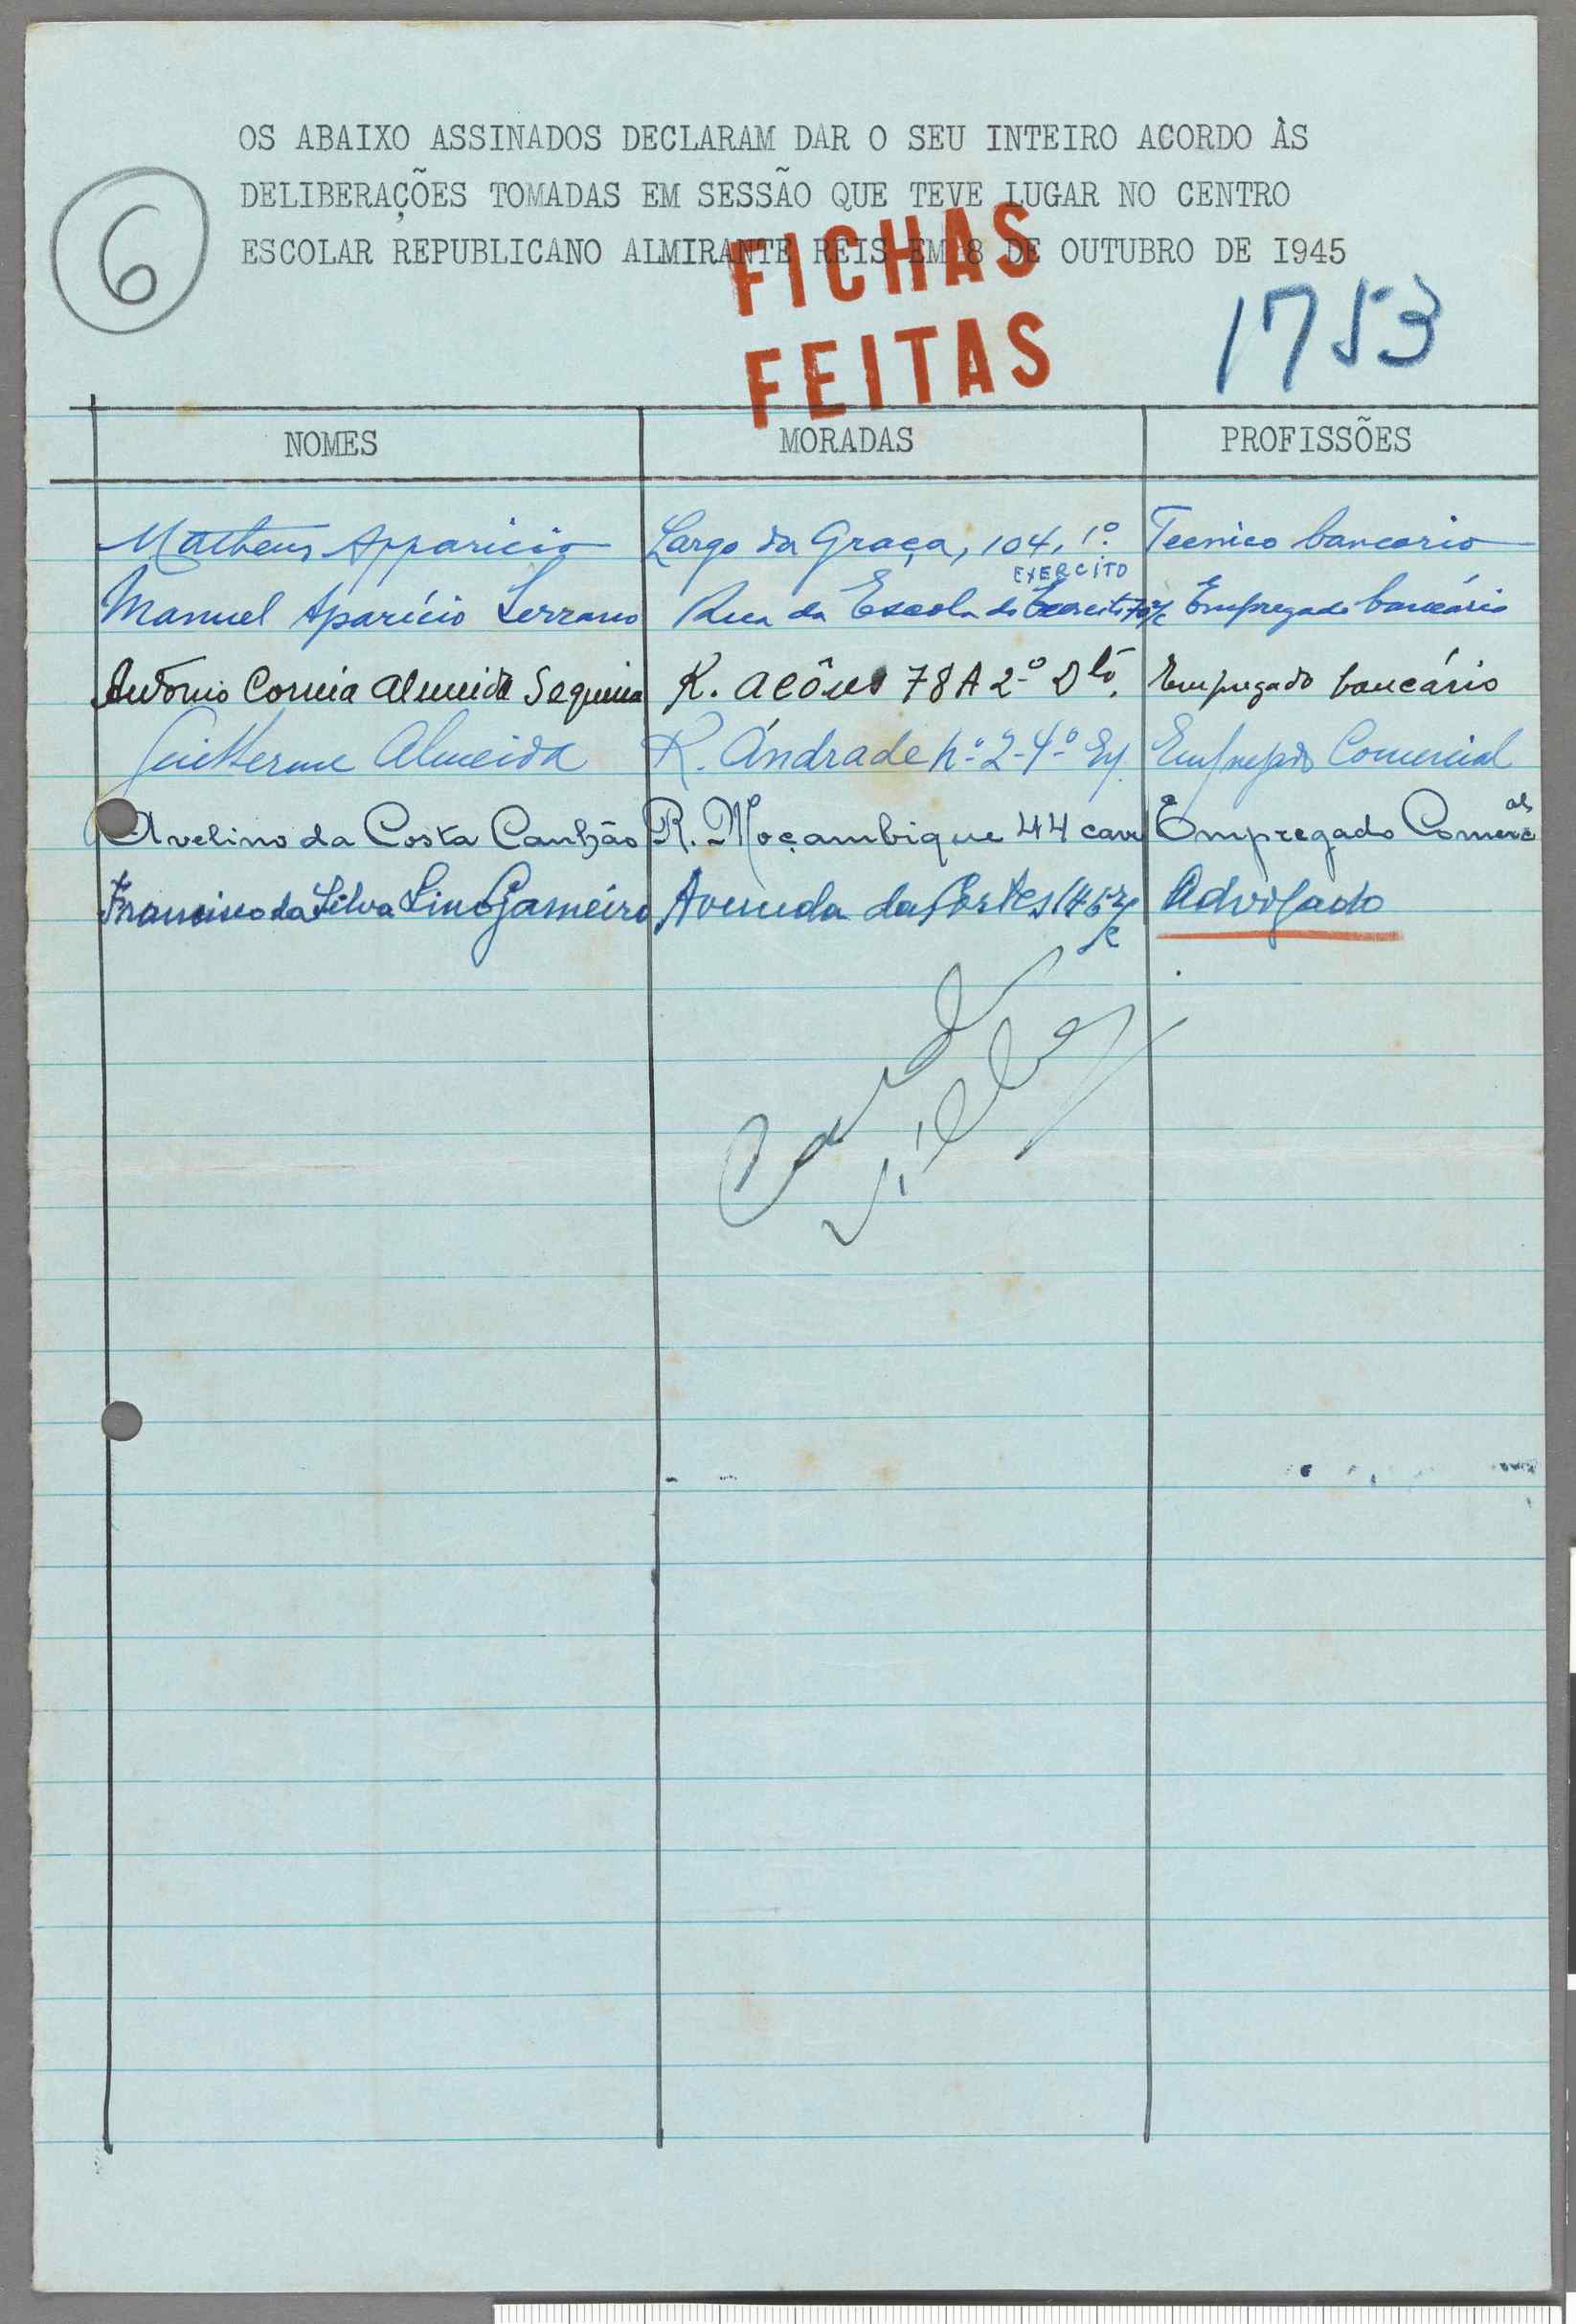 OS ABAIXO ASSINADOS DECLARAM DAR O SEU INTEIRO ACORDO ÀS
DELIBERAÇÕES TOMADAS EM SESSÃO QUE TEVE LUGAR NO CENTRO
ESCOLAR REPUBLICANO ALMIRANTE REIS EM 8 DE OUTUBRO DE I945
6
FICHAS
FEITAS
1753
NOMES MORADAS PROFISSÕES
Matheus Apparicio Largo da Graça, 104, 1º Tecnico bancario
EXERCITO
Manuel Aparício Serrano Rua da Escola do Exercito r/c Empregado bancário
António Correia Almeida Sequeira R. Açôres 78A 2º Dtó. Empregado bancário
Guilherme Almeida R. Ándrade nº 2-4º Eq. Empregado Comercial
Avelino da Costa Canhão R. Moçambique 44 cave Empregado Comercal
Francisco da Silva Lino Gameiro Avenida das Cortes r/c Advogado